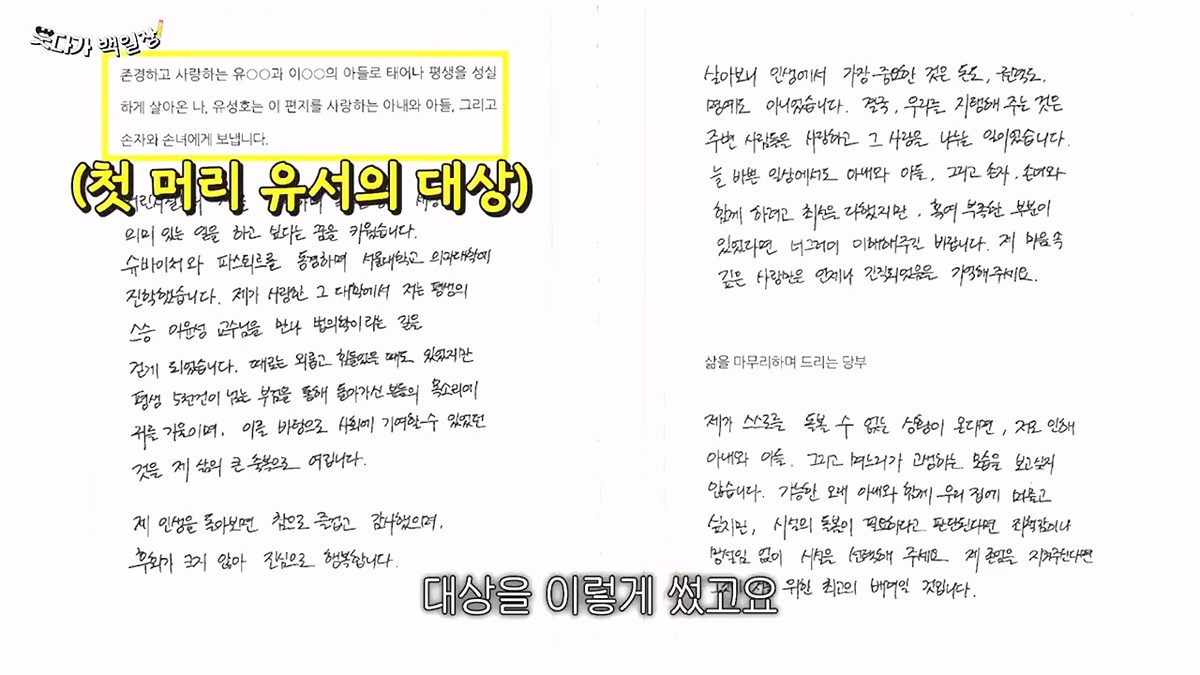 웃다가 백일장
존경하고 사랑하는 유○○과 이○○의 아들로 태어나 평생을 성실
하게 살아온 나, 유성호는 이 편지를 사랑하는 아내와 아들, 그리고
손자와 손녀에게 보냅니다.
(첫 머리 유서의 대상)
의미 있는 일을 하고 보다는 꿈을 키웠습니다.
슈바이처와 파스퇴르를 동경하며 서울대학교 의과대학에
진학했습니다. 제가 사랑한 그 대학에서 저는 평생의
스승 이윤성 교수님을 만나 법의학이라는 길을
걷게 되었습니다. 때로는 외롭고 힘들었을 때도 있었지만
평생 5천건이 넘는 부검을 통해 돌아가신 분들의 목소리에
귀를 기울이며, 이를 바탕으로 사회에 기여할 수 있었던
것을 제 삶의 큰 축복으로 여깁니다.
제 인생을 돌아보면 참으로 즐겁고 감사했으며,
후회가 크지 않아 진심으로 행복합니다.
살아보니 인생에서 가장 중요한 것은 돈도, 권력도,
명예도 아니었습니다. 결국, 우리를 지탱해 주는 것은
주변 사람들을 사랑하고 그 사랑을 나누는 일이었습니다.
늘 바쁜 일상에서도 아내와 아들, 그리고 손자, 손녀와
함께 하려고 최선을 다했지만, 혹여 부족한 부분이
있었다면 너그러이 이해해주길 바랍니다. 제 마음 속
깊은 사랑만은 언제나 간직되었음을 기억해주세요.
삶을 마무리하며 드리는 당부
제가 스스로를 돌볼 수 없는 상황이 온다면, 저로 인해
아내와 아들, 그리고 며느리가 고생하는 모습을 보고싶지
않습니다. 가능한 오래 아내와 함께 우리 집에 머물고
싶지만, 시설의 돌봄이 필요하다고 판단된다면 죄책감이나
망설임 없이 시설을 선택해 주세요. 제 존엄을 지켜준다면
위한 최고의 배려일 것입니다.
대상을 이렇게 썼고요